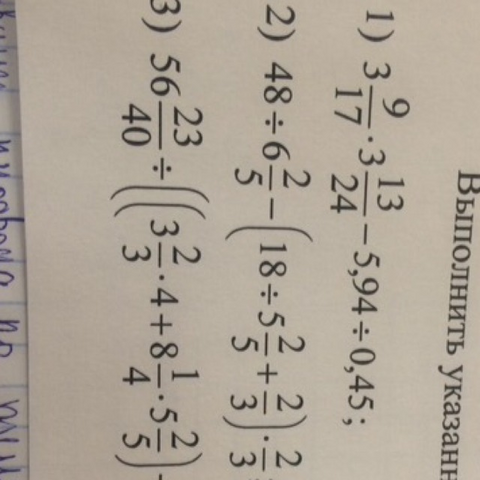 Выполнить указанн
1) 3 9/17 · 3 13/24 − 5,94 ÷ 0,45;
2) 48 ÷ 6 2/5 − (18 ÷ 5 2/5 + 2/3) · 2/3
3) 56 23/40 ÷ ((3 2/3 · 4 + 8 1/4 · 5 2/5)